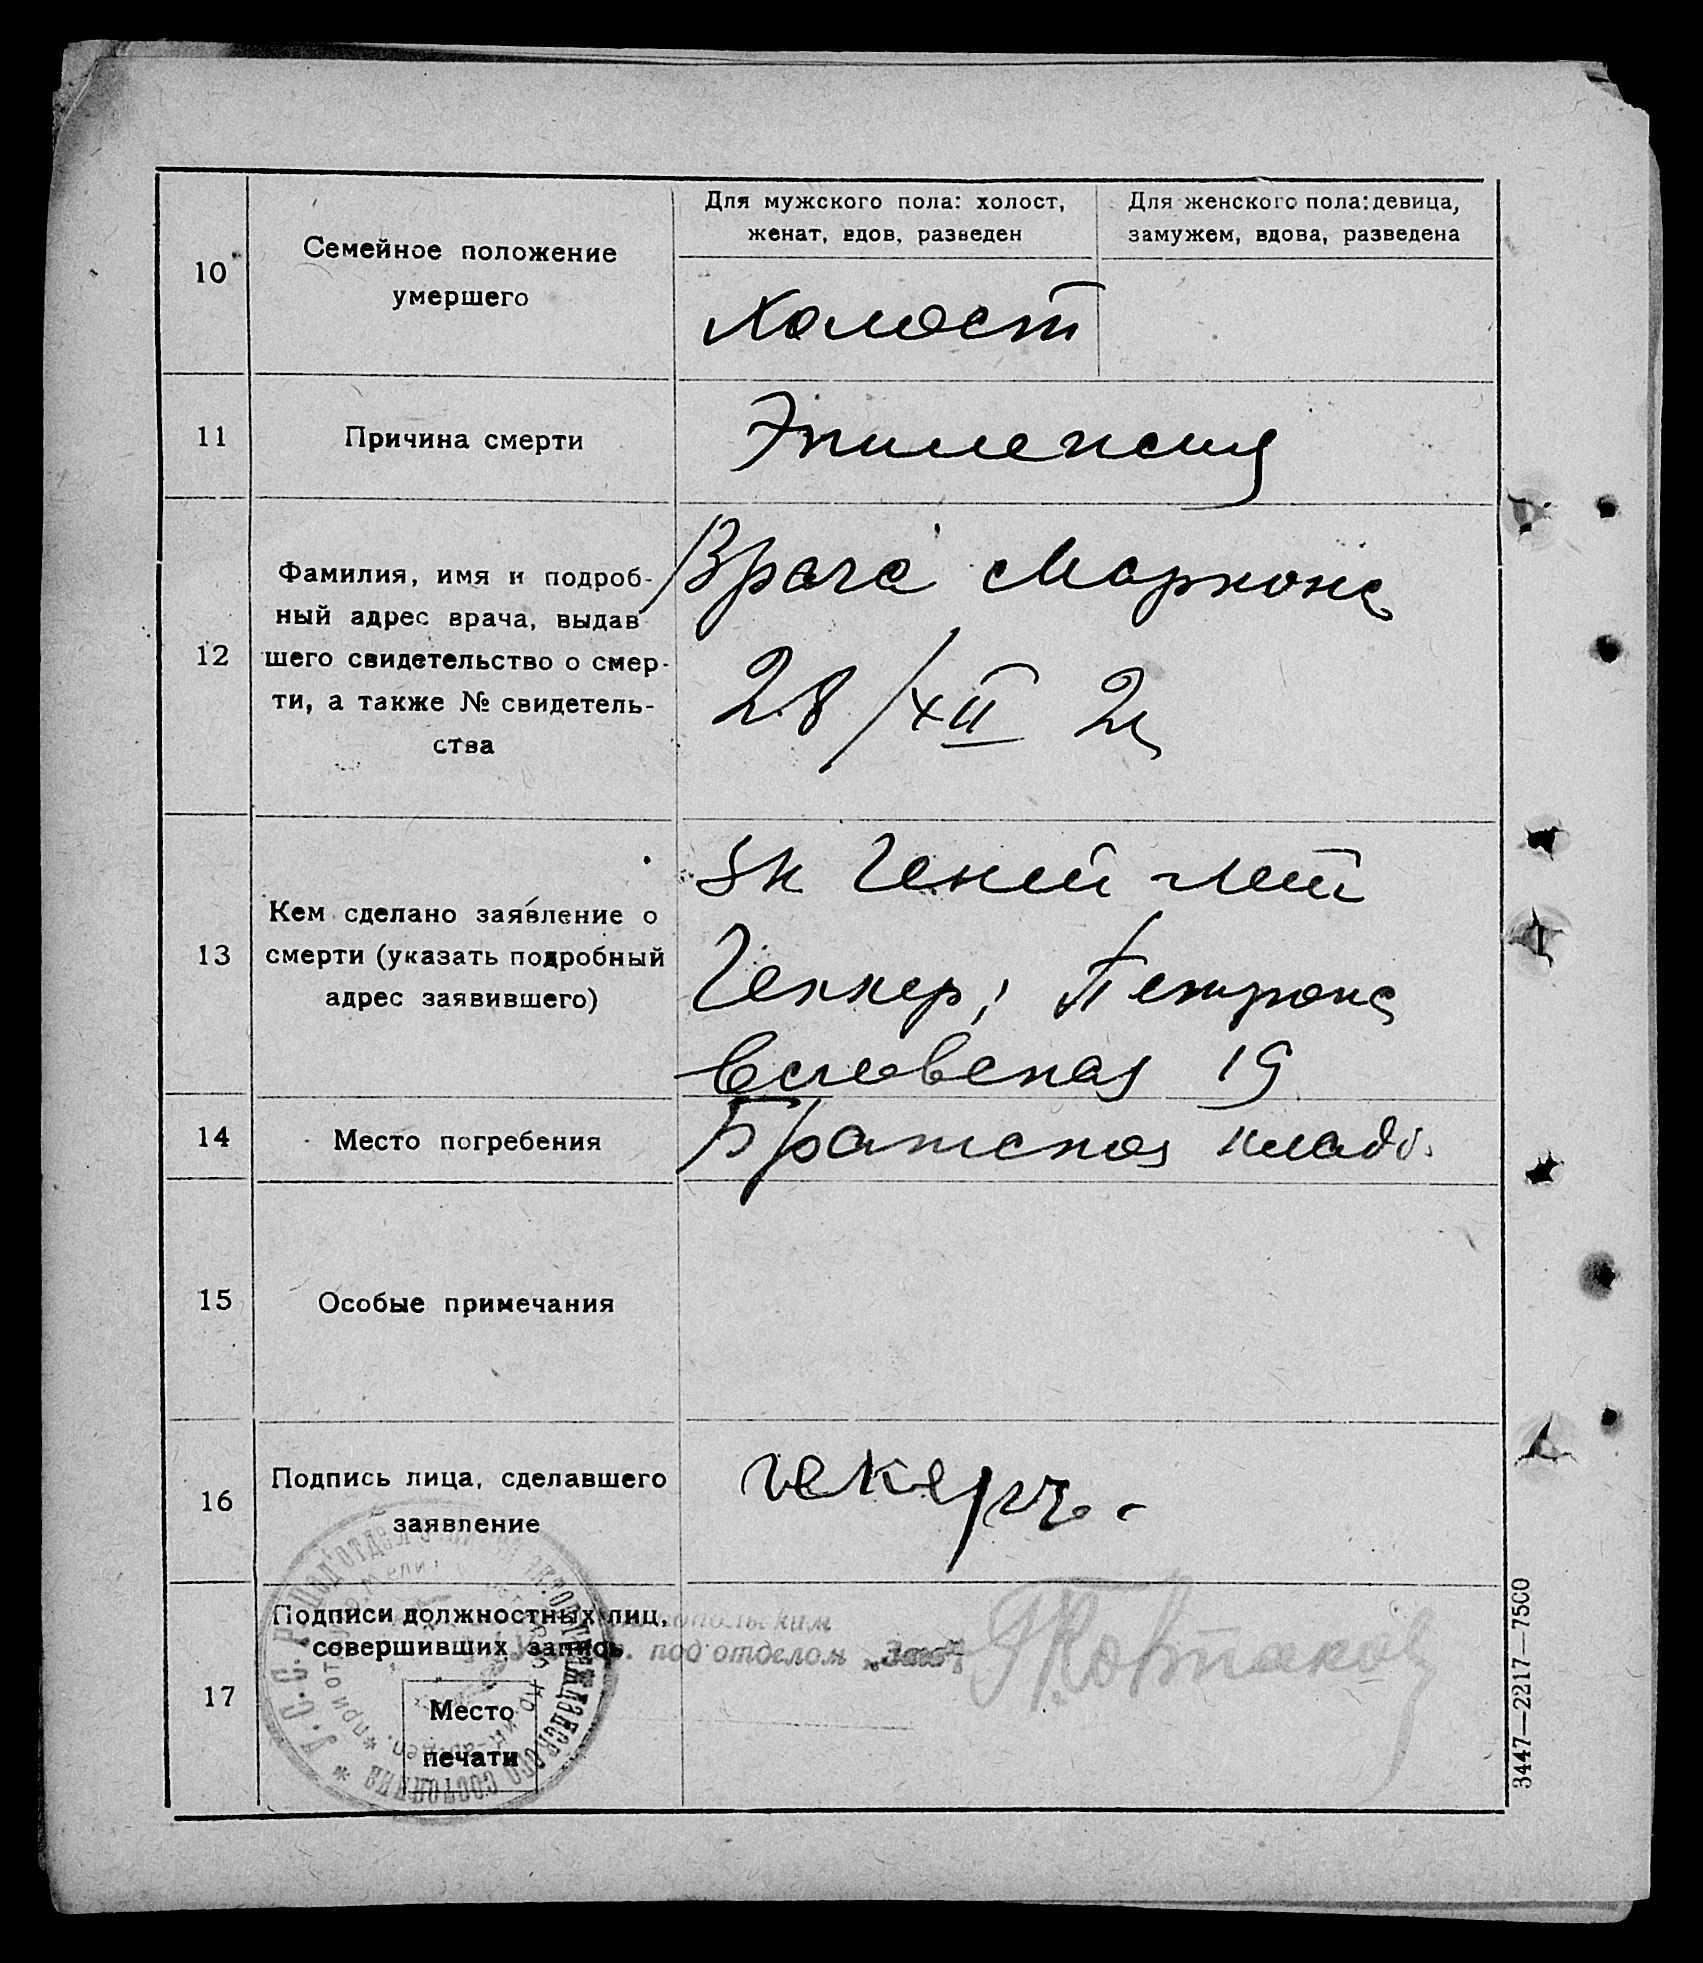 10
Семейное положение
умершего
Для мужского пола: холост,
женат, вдов, разведен
Для женского пола: девица,
замужем, вдова, разведена
Холост
11
Причина смерти
Эпилепсия
12
Фамилия, имя и подроб-
ный адрес врача, выдав
шего свидетельство о смер-
ти, а также № свидетель-
ства
Врача Маркона
28/XII
13
Кем сделано заявление о
смерти (указать подробный
адрес заявившего)
Геккер,
19
14
Место погребения
Братское кладб.
15
Особые примечания
16
Подпись лица, сделавшего
заявление
17
Подписи должностных лиц,
совершивших запись
под'отделом
Место
печати
У.С.С.Р. Под'отдел
гражданского состояния
3447—2217—7500